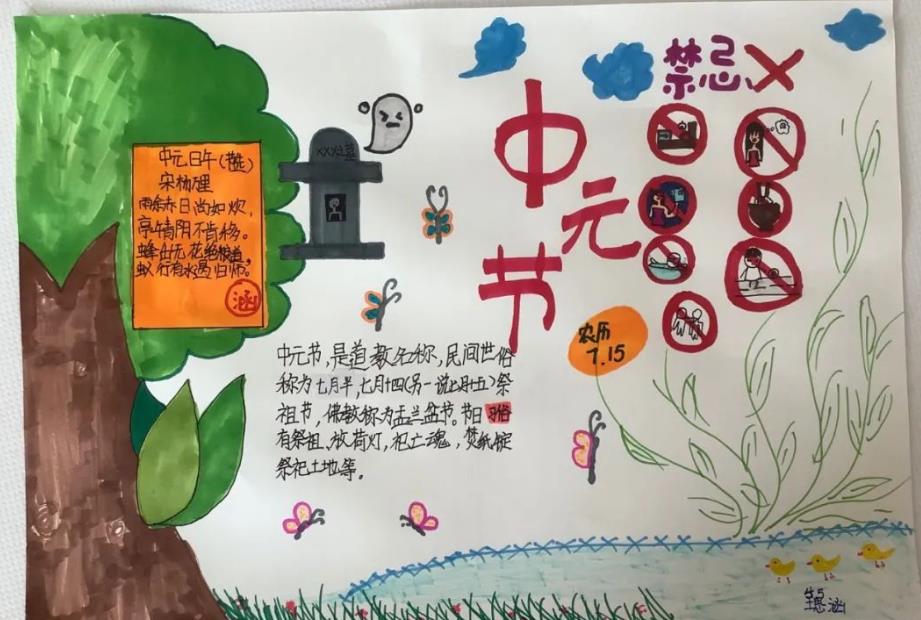 禁忌
中元节
中元日午
宋 杨万里
雨余赤日尚如炊，
亭午晴阴不肯移。
蜂出无花绝粮道，
蚁行有水遏归师。
涵
XXX之墓
农历
7.15
中元节，是道教名称，民间世俗
称为七月半，七月十四(另一说七月十五)祭
祖节，佛教称为盂兰盆节。节日习俗
有祭祖、放荷灯，祀亡魂，焚纸锭
祭祀土地等。